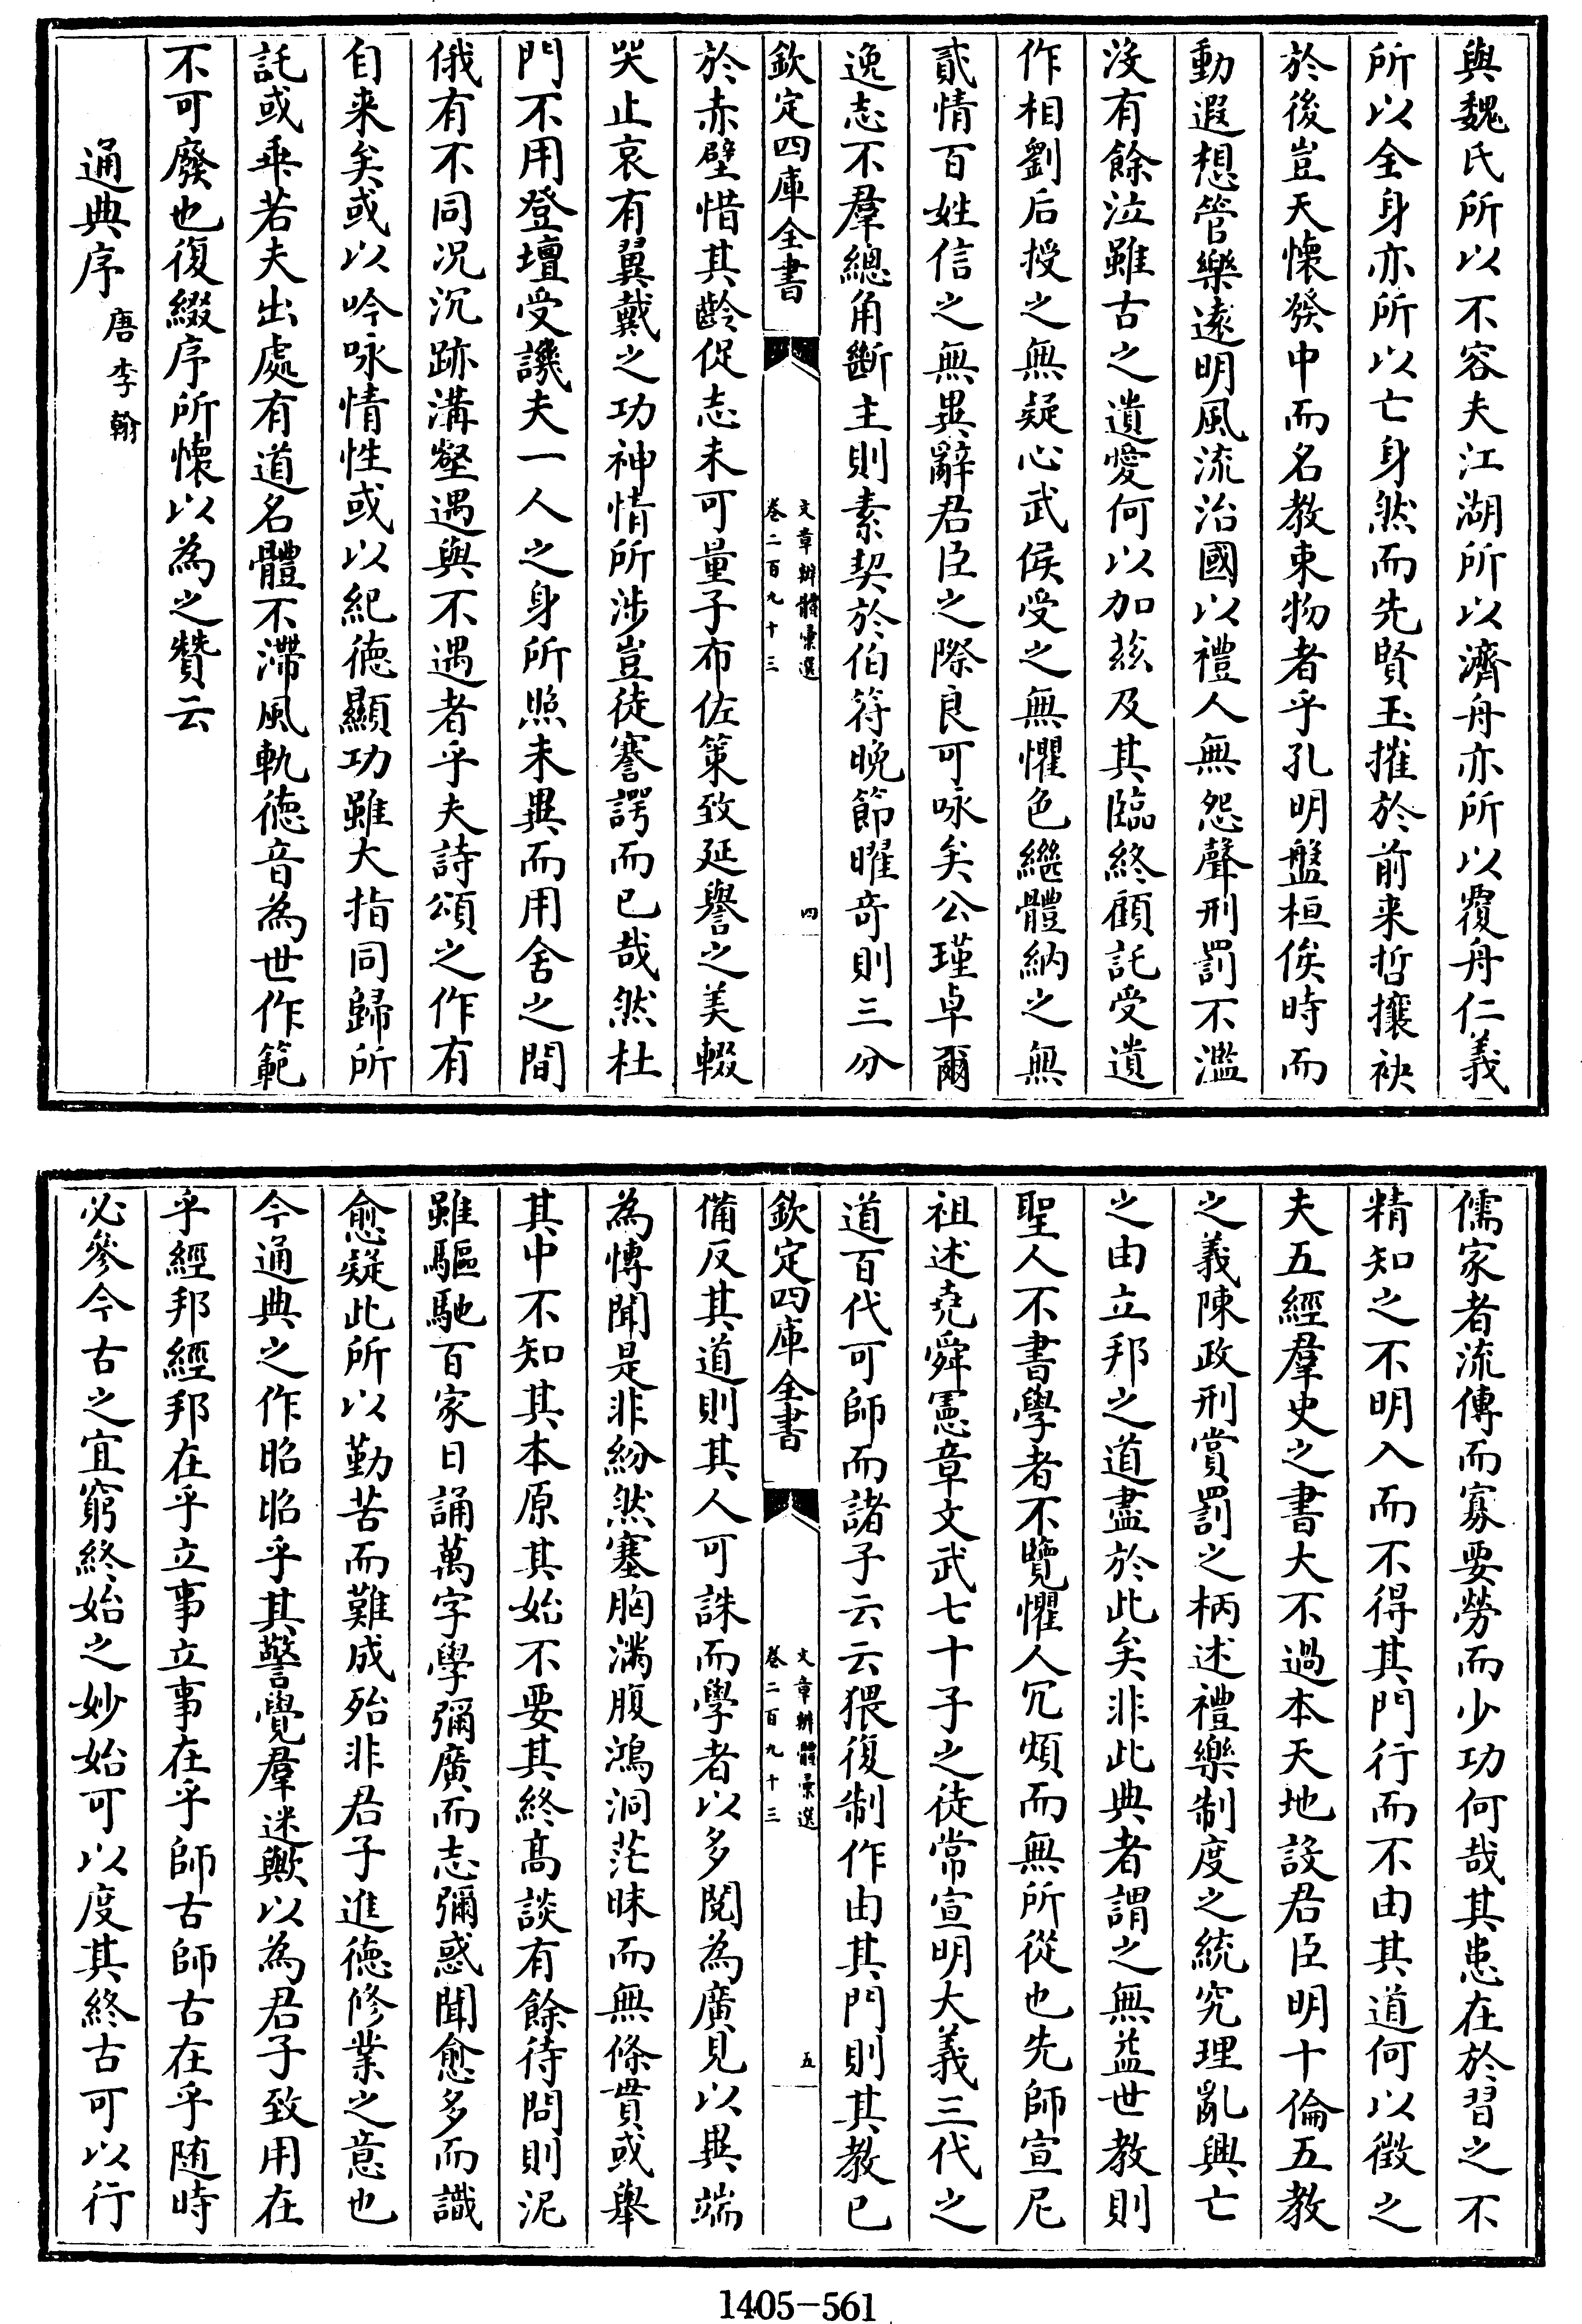 與魏氏所以不容夫江湖所以濟舟亦所以覆舟仁義
所以全身亦所以亡身然而先賢玉摧於前来哲攘袂
於後豈天懐發中而名教束物者乎孔明盤桓俟時而
動遐想管樂逺明風流治國以禮人無怨聲刑罰不濫
沒有餘泣雖古之遺愛何以加兹及其臨終顧託受遺
作相劉后授之無疑心武侯受之無懼色繼體納之無
貳情百姓信之無異辭君臣之際良可咏矣公瑾卓爾
逸志不羣總角斷主則素契於伯符晩節曜奇則三分
欽定四庫全書
文章辨體彙選
卷二百九十三
四
於赤壁惜其齡促志未可量子布佐策致延譽之美輟
哭止哀有翼戴之功神情所涉豈徒謇諤而已哉然杜
門不用登壇受譏夫一人之身所照未異而用舍之間
俄有不同况沉跡溝壑遇與不遇者乎夫詩頌之作有
自来矣或以吟咏情性或以紀徳顯功雖大指同歸所
託或乖若夫出處有道名體不滯風軌徳音為世作範
不可廢也復綴序所懐以為之贊云
通典序
唐李翰
儒家者流傳而寡要勞而少功何哉其患在於習之不
精知之不明入而不得其門行而不由其道何以徴之
夫五經羣史之書大不過本天地設君臣明十倫五教
之義陳政刑賞罰之柄述禮樂制度之統究理亂興亡
之由立邦之道盡於此矣非此典者謂之無益世教則
聖人不書學者不覽懼人冗煩而無所從也先師宣尼
祖述堯舜憲章文武七十子之徒常宣明大義三代之
道百代可師而諸子云云猥復制作由其門則其教已
欽定四庫全書
文章辨體彙選
卷二百九十三
五
備反其道則其人可誅而學者以多閱為廣見以異端
為博聞是非紛然塞胸滿腹鴻洞茫昧而無條貫或舉
其中不知其本原其始不要其終髙談有餘待問則泥
雖驅馳百家日誦萬字學彌廣而志彌惑聞愈多而識
愈疑此所以勤苦而難成殆非君子進徳修業之意也
今通典之作昭昭乎其警覺羣迷歟以為君子致用在
乎經邦經邦在乎立事立事在乎師古師古在乎随時
必參今古之宜窮終始之妙始可以度其終古可以行
1405-561